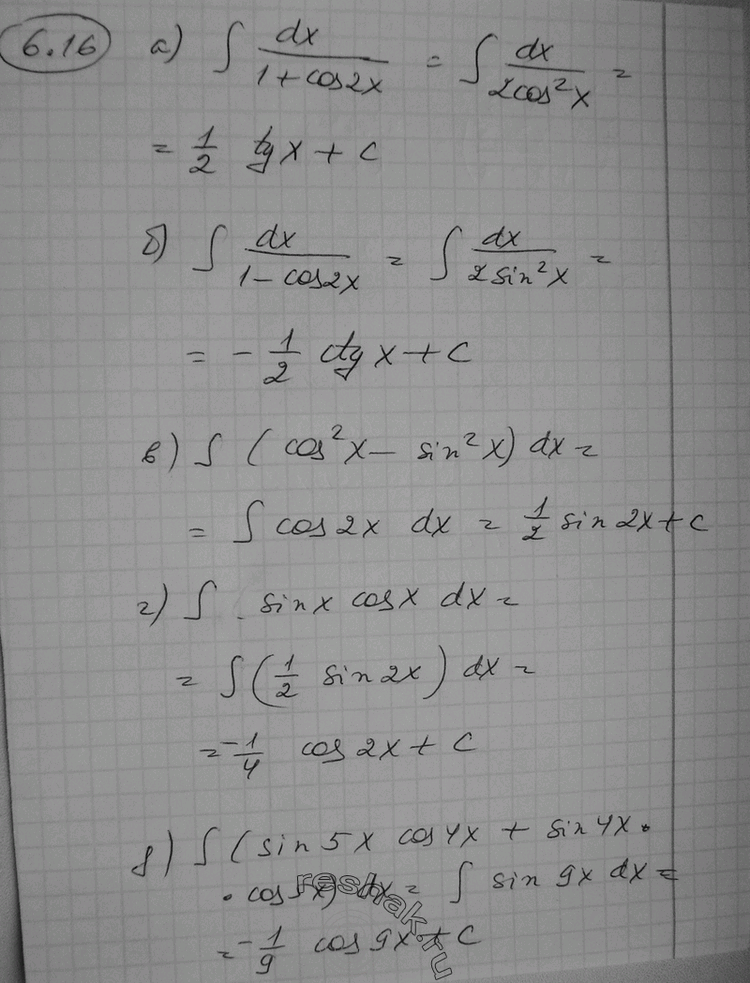 6.16 а) ∫ dx/(1+cos2x) = ∫ dx/(2cos²x) =
= 1/2 tg x + c
б) ∫ dx/(1-cos2x) = ∫ dx/(2sin²x) =
= -1/2 ctg x + c
в) ∫ (cos²x - sin²x) dx =
= ∫ cos2x dx = 1/2 sin2x + c
г) ∫ sinx cosx dx =
= ∫(1/2 sin2x) dx =
= -1/4 cos2x + c
д) ∫ (sin5x cos4x + sin4x ·
· cos5x) dx = ∫ sin9x dx =
= -1/9 cos9x + c
reshak.ru